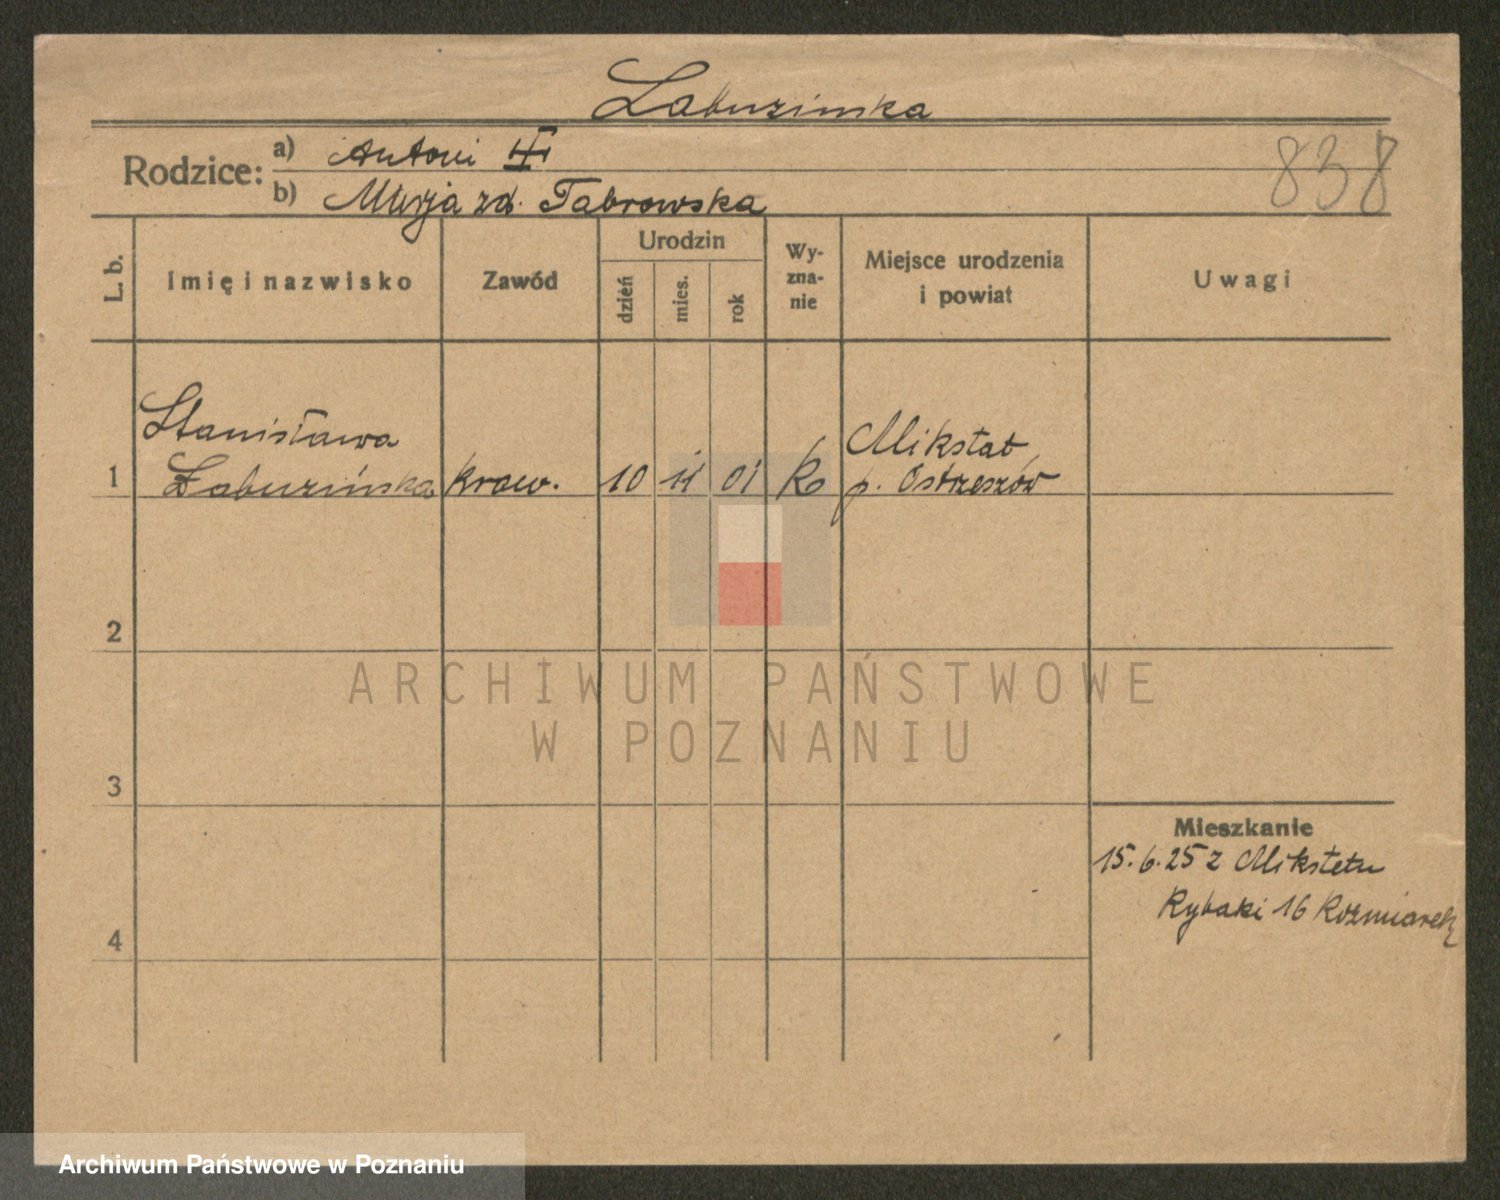 Labuzinska
Rodzice: a) Antoni III
b) Marja zd. Tabrowska
838
L. b.
Imię i nazwisko
Zawód
Urodzin
dzień
mies.
rok
Wy-
zna-
nie
Miejsce urodzenia
i powiat
Uwagi
Stanisława
1 Łabuzińska kraw. 10 11 01 k Mikstat
p. Ostrzeszów
2
ARCHIWUM PAŃSTWOWE
W POZNANIU
3
Mieszkanie
15.6.25 z Mikstatu
Rybaki 16 Kozmiarek
4
Archiwum Państwowe w Poznaniu